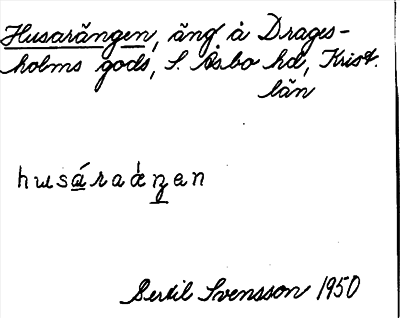 Husarängen, äng å Drages-
holms gods, S. Åsbo hd, Krist.
län
husáraȧŋen
Bertil Svensson 1950